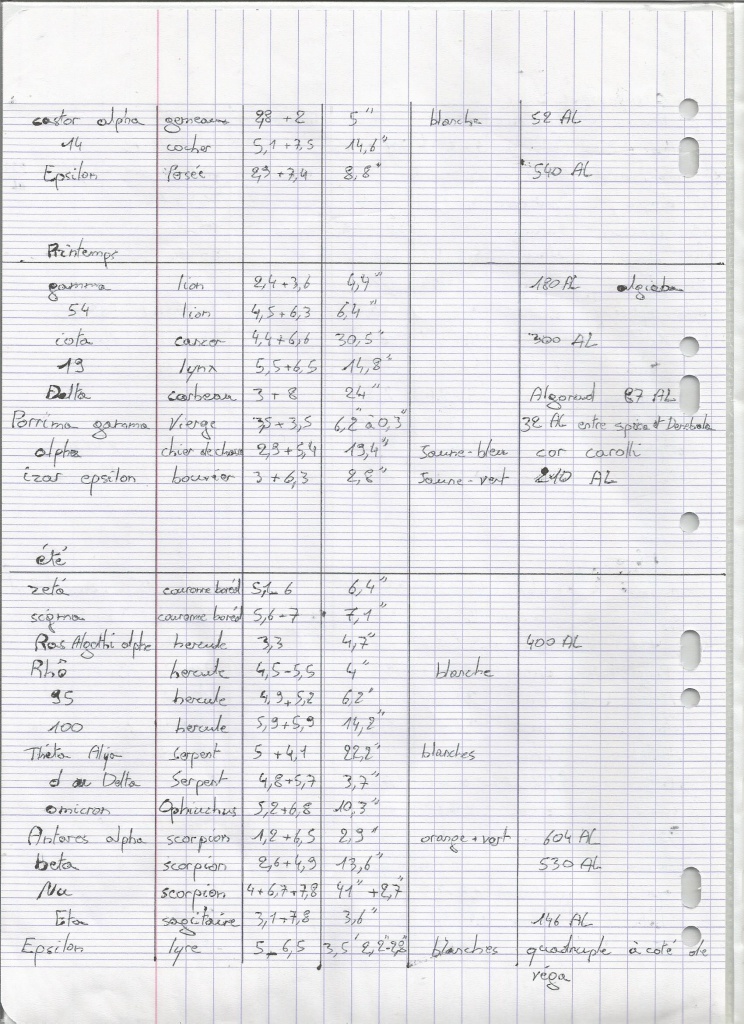 castor alpha gemeaux 2,8 + 2 5" blanche 52 AL
14 cocher 5,1 + 7,5 14,6"
Epsilon Persée 2,9 + 7,4 8,8" 540 AL
Printemps
gamma lion 2,4 + 3,6 4,4" 180 AL algieba
54 lion 4,5 + 6,3 6,4"
iota cancer 4,4 + 6,6 30,5" 300 AL
19 lynx 5,5 + 6,5 14,8"
Delta corbeau 3 + 8 24" Algoraud 87 AL
Porrima gamma Vierge 3,5 + 3,5 6,2" à 0,3" 32 AL entre spica et Denebola
alpha chien de chasse 2,9 + 5,4 19,4" Jaune - bleu cor carolli
izar epsilon bouvier 3 + 6,3 2,8" Jaune - vert 210 AL
été
zeta couronne boréal 5,1 - 6 6,4"
sigma couronne boréal 5,6 - 7 7,1"
Ras Algethi alpha hercule 3,3 4,7" 400 AL
Rhô hercule 4,5 - 5,5 4" blanche
95 hercule 4,9 + 5,2 6,2"
100 hercule 5,9 + 5,9 14,2"
Théta Alya Serpent 5 + 4,1 22,2" blanches
d ou Delta Serpent 4,8 + 5,7 3,7"
omicron Ophiuchus 5,2 + 6,8 10,3"
Antares alpha scorpion 1,2 + 6,5 2,9" orange + vert 604 AL
beta scorpion 2,6 + 4,9 13,6" 530 AL
Nu scorpion 4 + 6,7 + 7,8 41" + 2,7"
Eta sagitaire 3,1 + 7,8 3,6" 146 AL
Epsilon lyre 5 - 6,5 3,5' 2,2"-2,8" blanches quadruple à coté de
véga